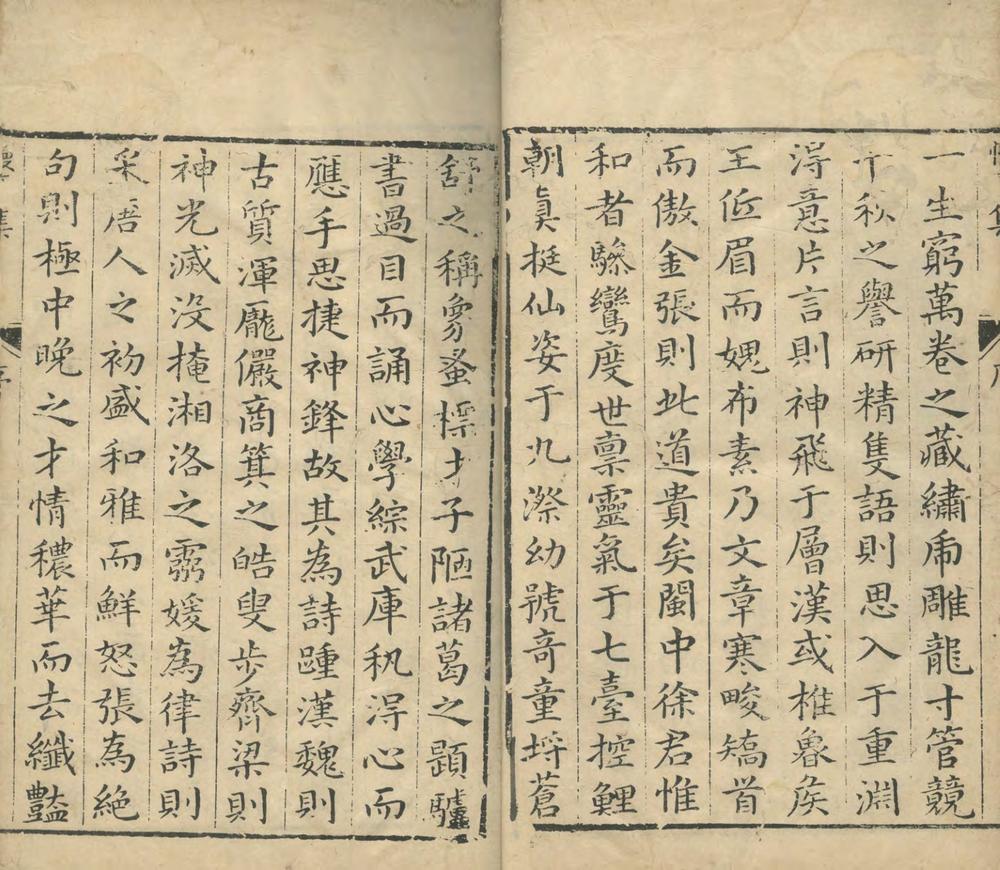 一生窮萬卷之藏繡虎雕龍寸管競
千秋之譽研精隻語則思入于重淵
淂意片言則神飛于層漢或椎魯矦
王伍眉而媿布素乃文章寒畯矯首
而傲金張則此道貴矣閩中徐君惟
和者驂鸞度世禀靈氣于七臺控鯉
朝真挺仙姿于九漈幼號竒童埒蒼
舒之稱㝱蚤標才子陋諸葛之題驢
書過目而誦心學綜武庫秇淂心而
應手思捷神鋒故其為詩踵漢魏則
古質渾龎儼商箕之皓叟歩齊梁則
神光滅没掩湘洛之孺媛為律詩則
采唐人之初盛和雅而鮮怒張為絶
句則極中晚之才情穠華而去纖豔